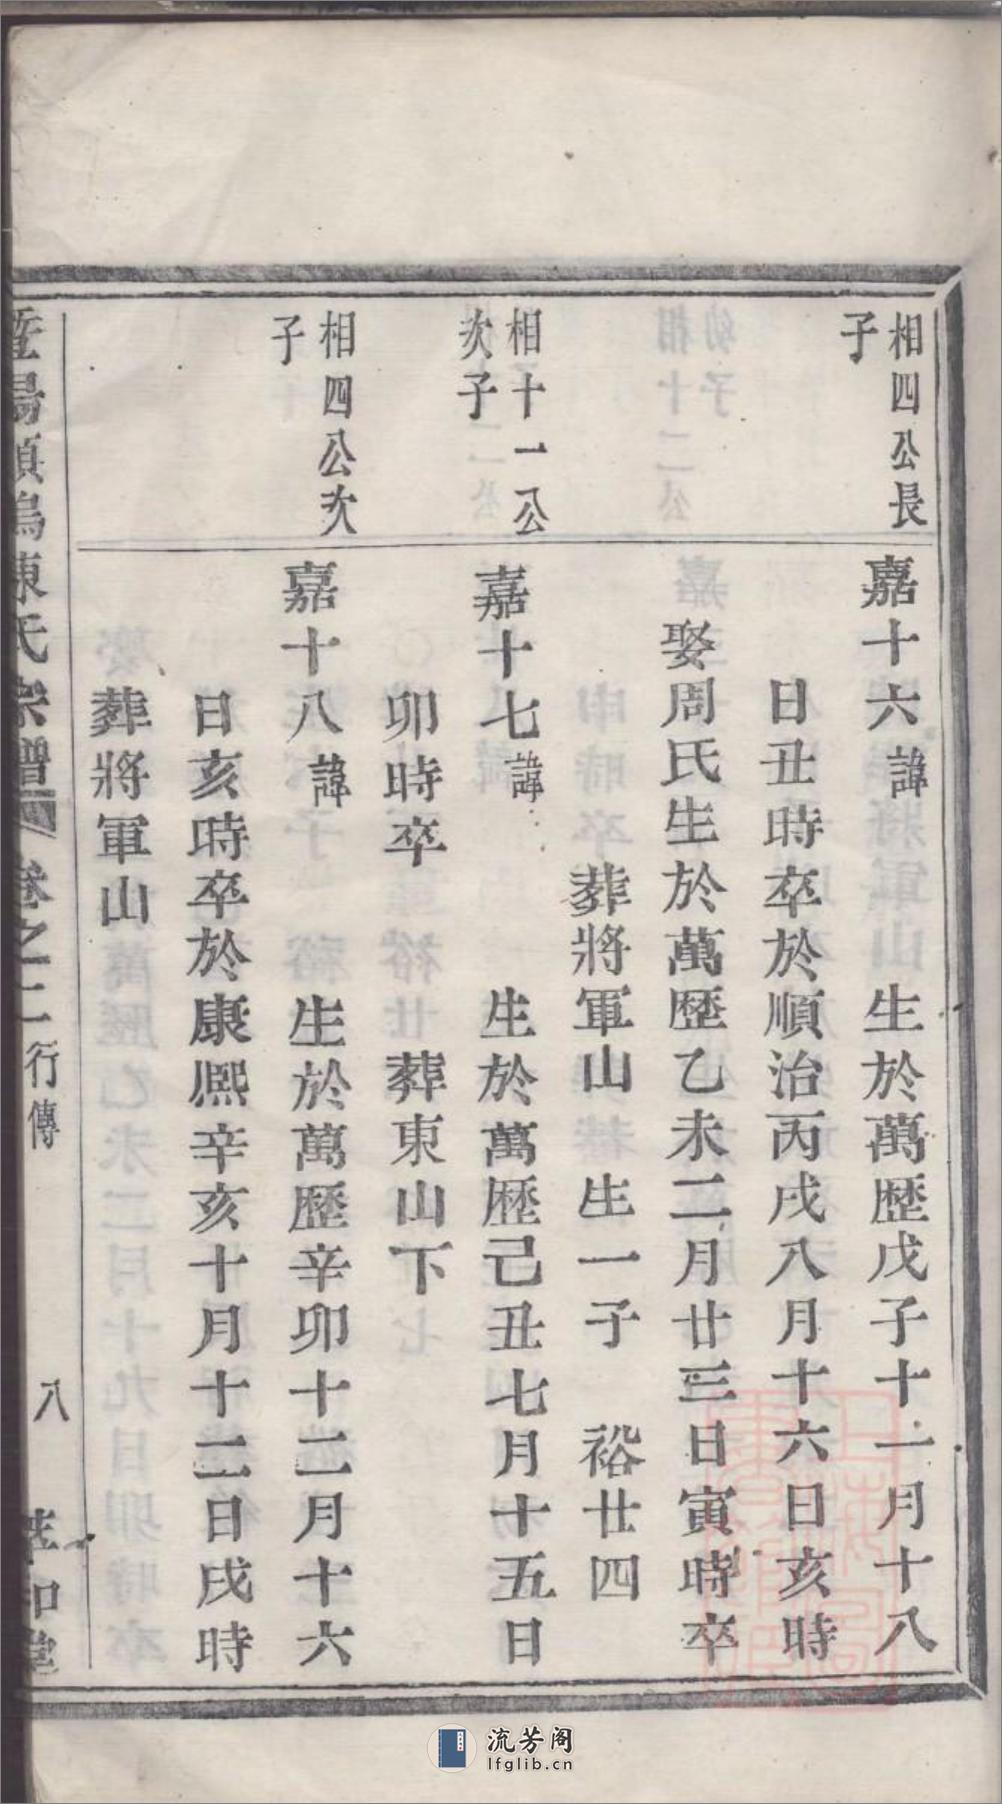 相四公長
子
嘉十六諱　生於萬歷戊子十一月十八
日丑時卒於順治丙戌八月十六日亥時
娶周氏生於萬歷乙未二月廿三日寅時卒
葬將軍山　生一子　裕廿四
相十一公
次子
嘉十七諱　生於萬歷己丑七月十五日
卯時卒　葬東山下
相四公次
子
嘉十八諱　生於萬歷辛卯十二月十六
日亥時卒於康熙辛亥十月十二日戌時
葬將軍山
陳氏宗譜　卷之二　行傳　八
流芳阁
lfglib.cn